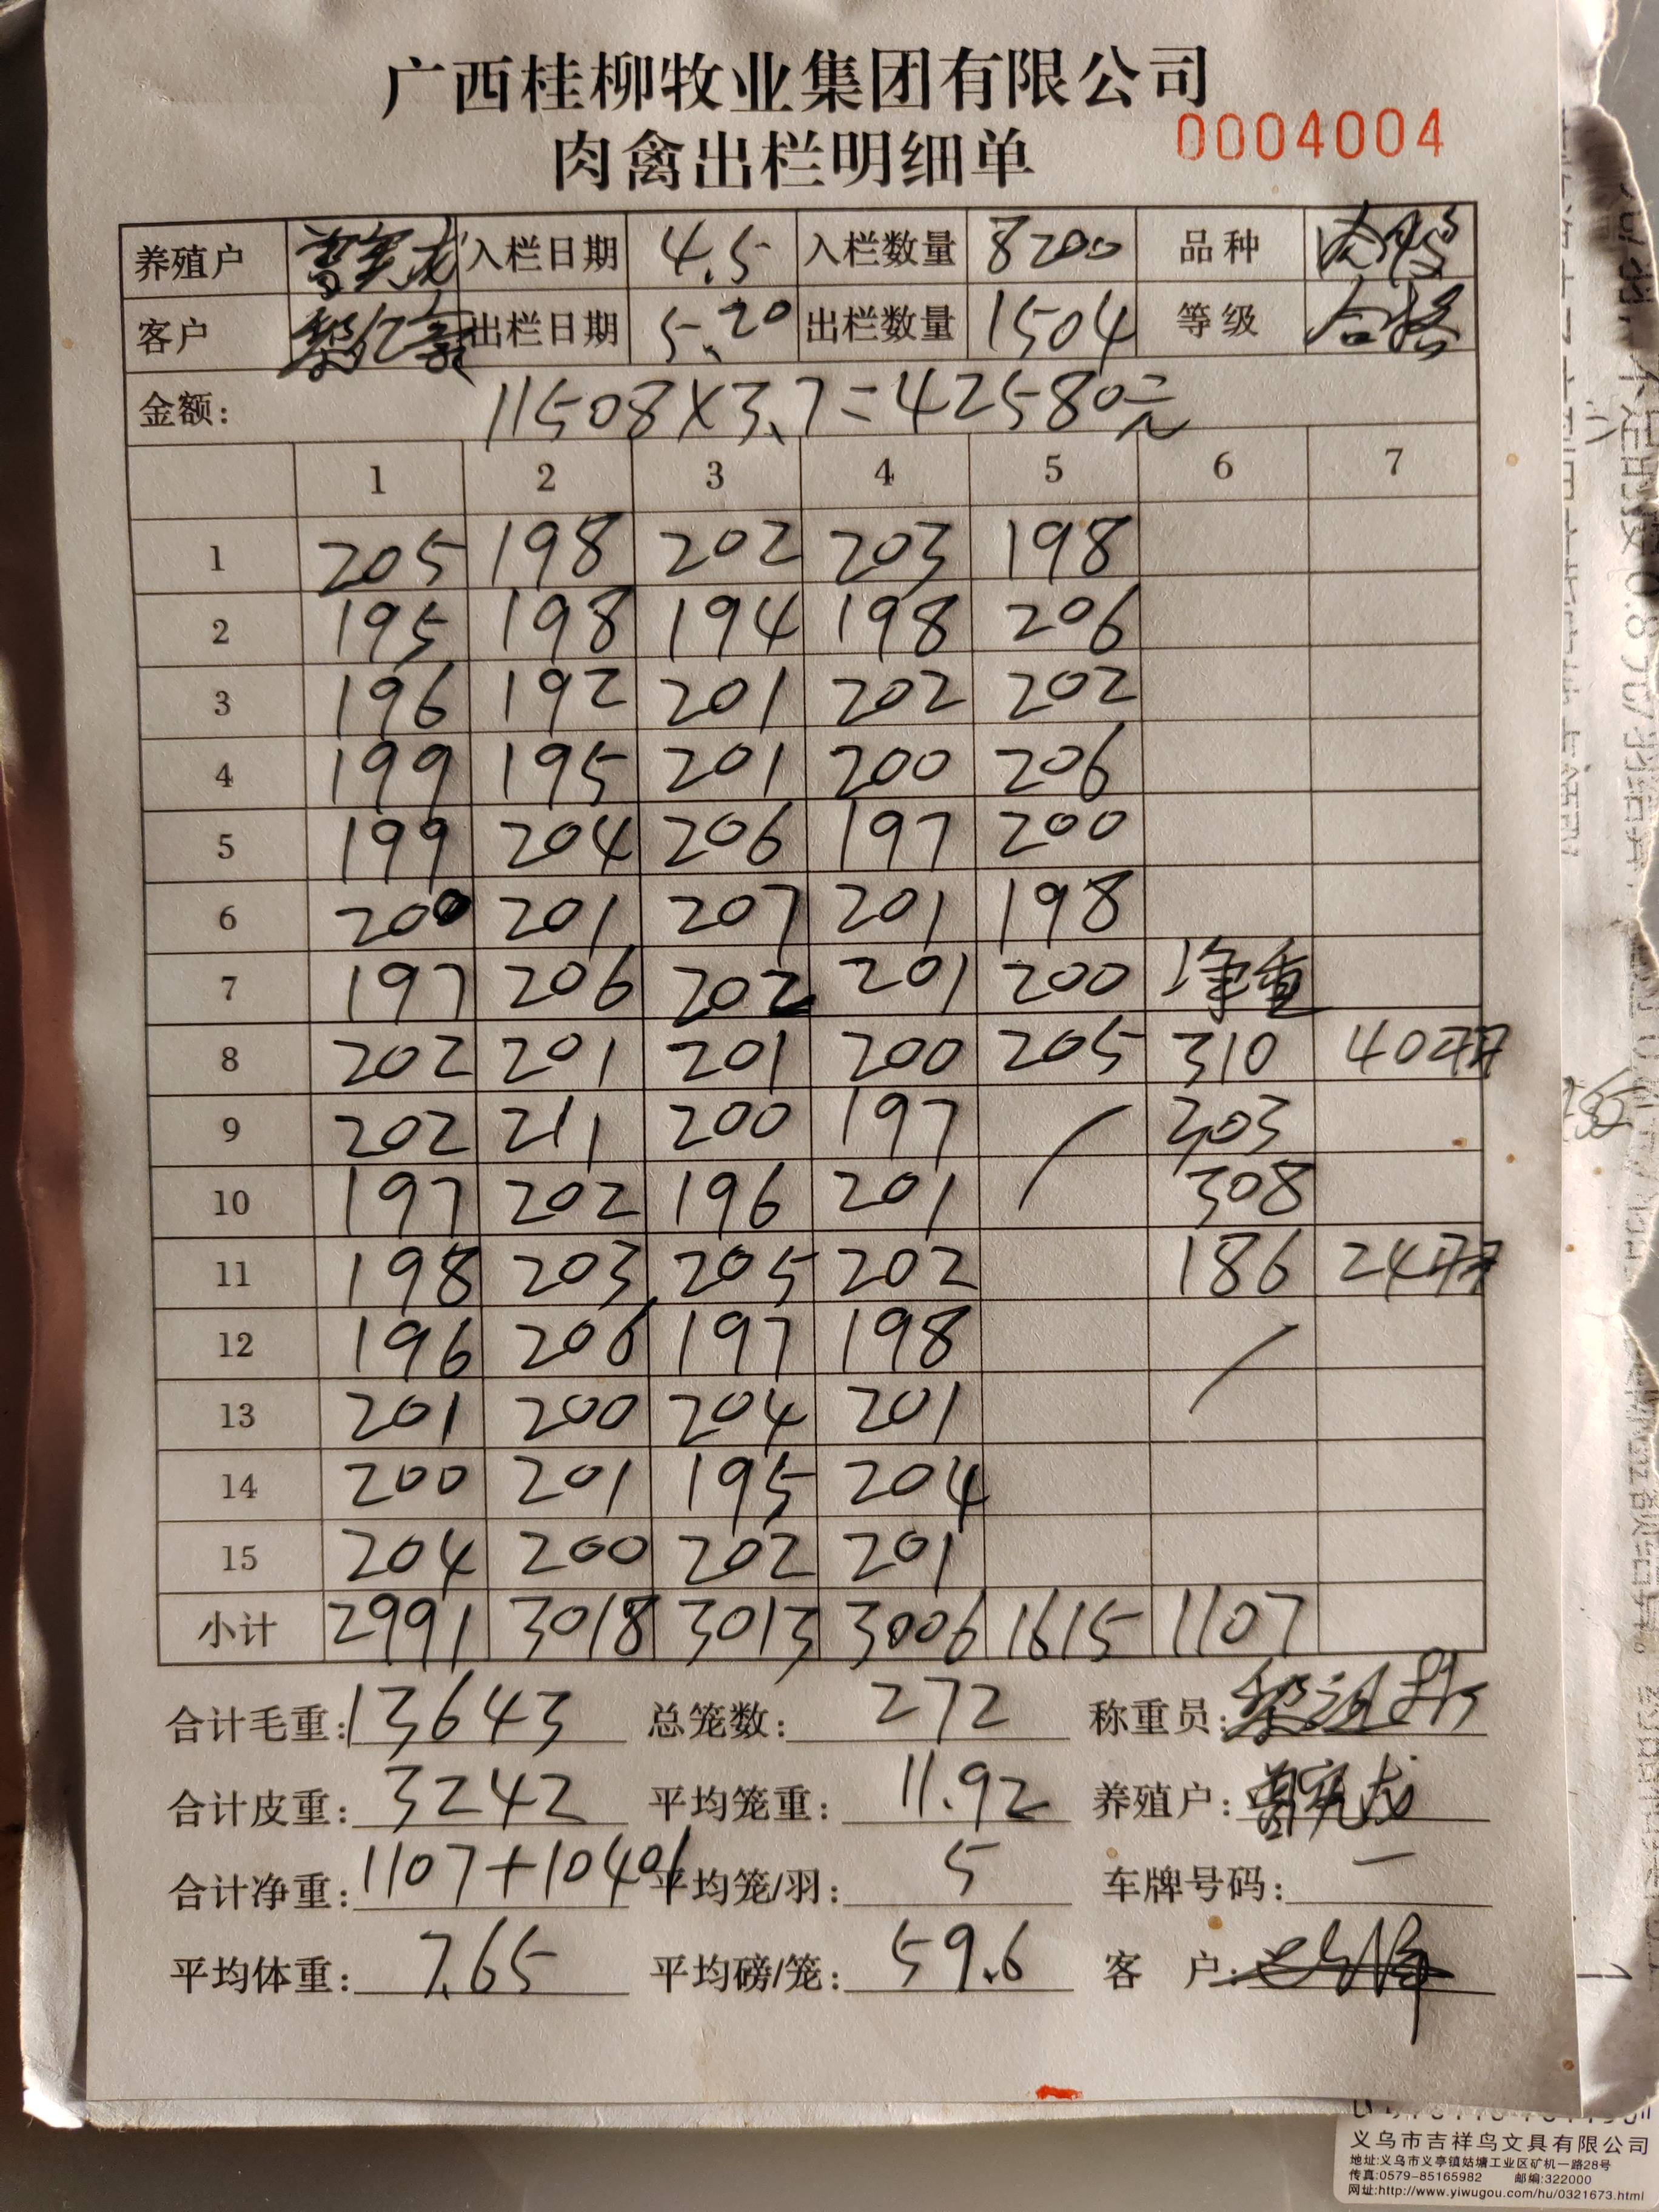 广西桂柳牧业集团有限公司
肉禽出栏明细单
0004004
养殖户 入栏日期 4.5 入栏数量 8200 品种
客户 出栏日期 5.20 出栏数量 1504 等级 合格
金额: 11508×3.7=42580元
1 2 3 4 5 6 7
1 205 198 202 203 198
2 195 198 194 198 206
3 196 192 201 202 202
4 199 195 201 200 206
5 199 204 206 197 200
6 200 201 207 201 198
7 197 206 202 201 200 净重
8 202 201 201 200 205 310 40羽
9 202 211 200 197 / 303
10 197 202 196 201 308
11 198 203 205 202 186 24羽
12 196 206 197 198 /
13 201 200 204 201
14 200 201 195 204
15 204 200 202 201
小计 2991 3018 3013 3006 1615 1107
合计毛重: 13643 总笼数: 272 称重员:
合计皮重: 3242 平均笼重: 11.92 养殖户:
合计净重: 1107+10401 平均笼/羽: 5 车牌号码: 一
平均体重: 7.65 平均磅/笼: 59.6 客 户:
义乌市吉祥鸟文具有限公司
地址:义乌市义亭镇姑塘工业区矿机一路28号
传真:0579-85165982 邮编:322000
网址:http://www.yiwugou.com/hu/0321673.html